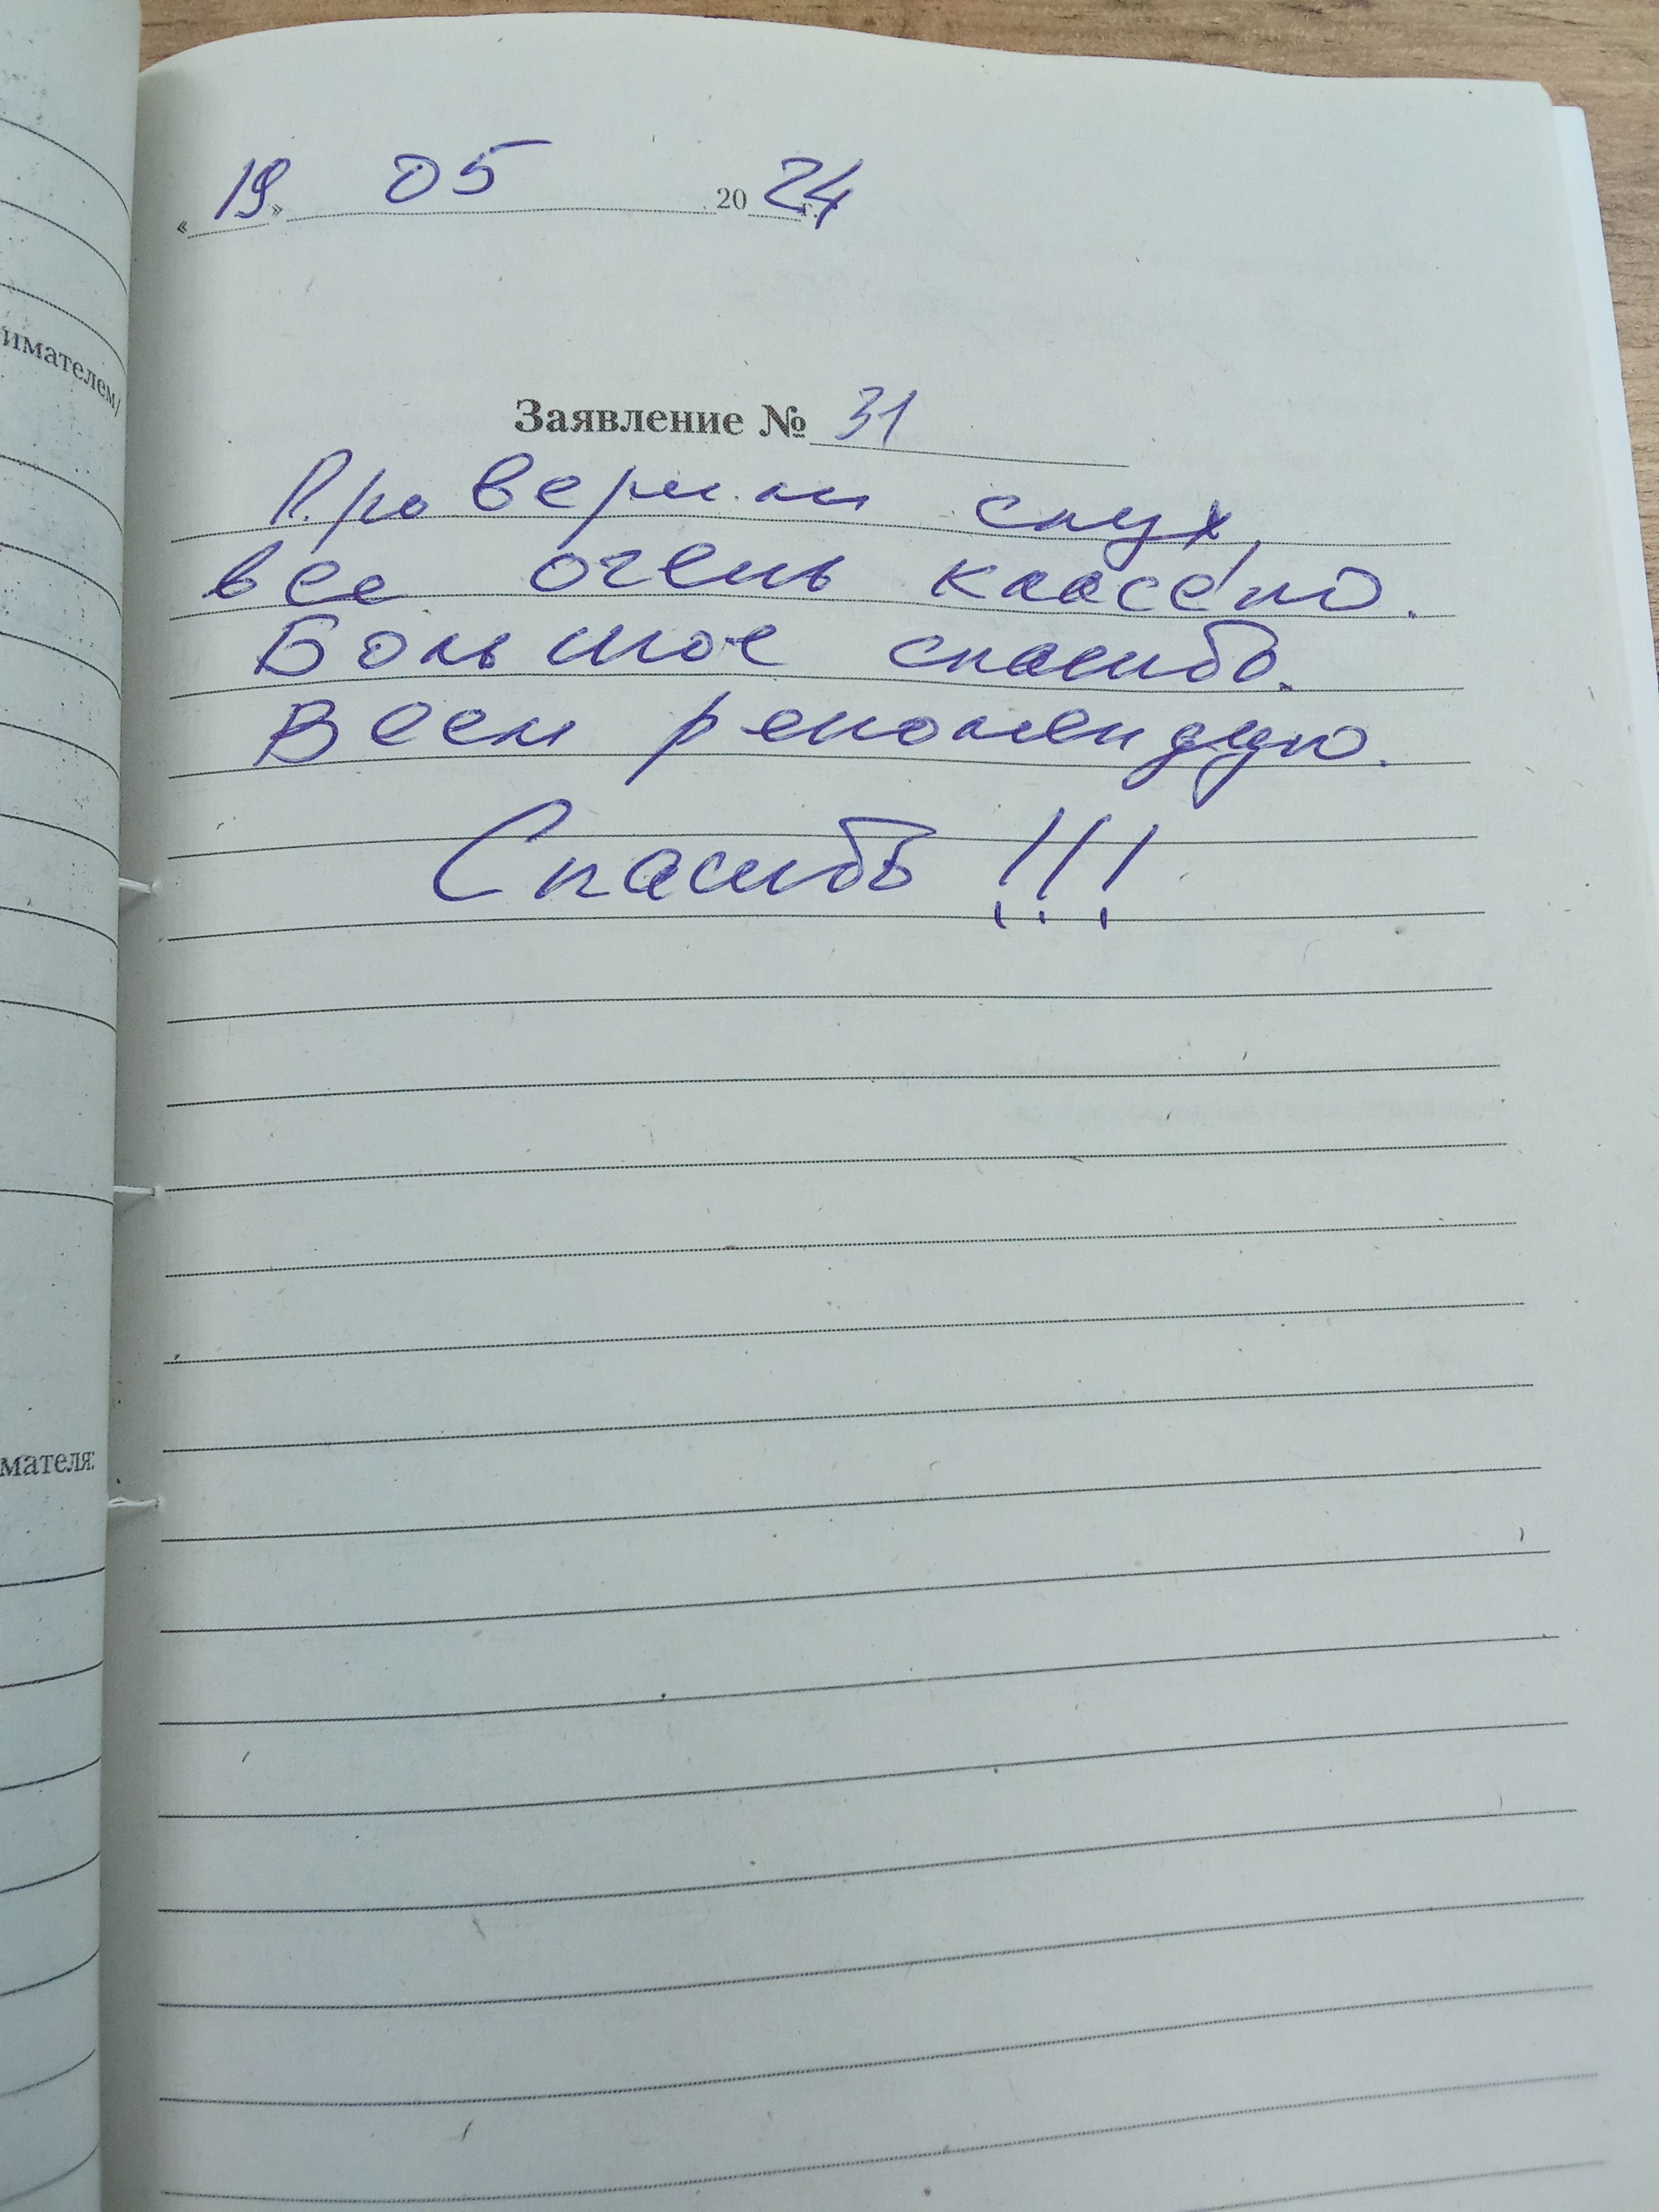 имателем/
мателя:
«19» 05 2024 г.
Заявление № 31
Проверили слух,
все очень классно.
Большое спасибо.
Всем рекомендую.
Спасибо!!!